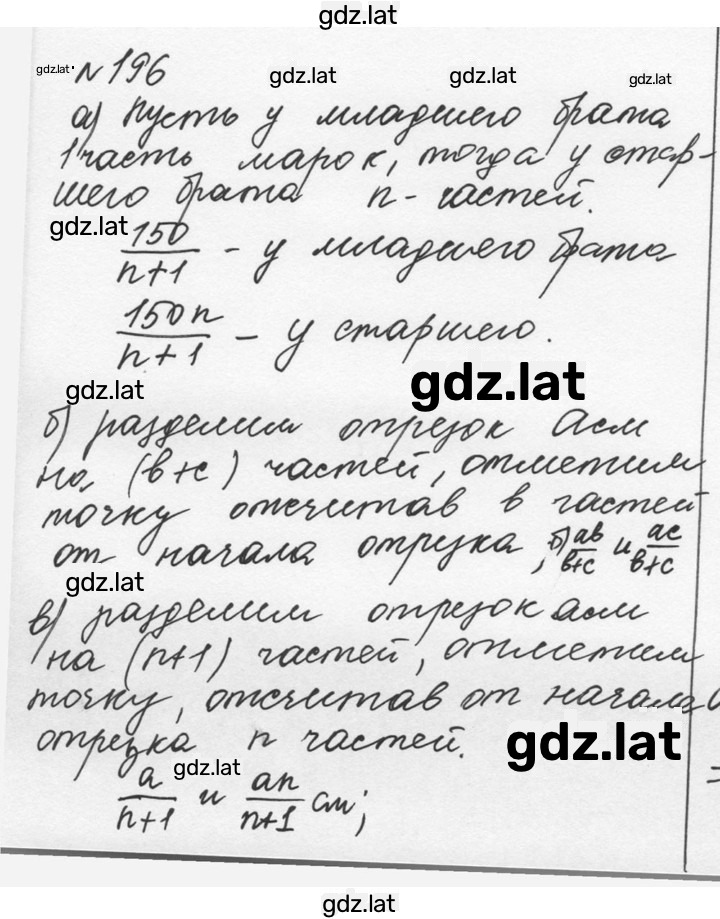 gdz.lat
gdz.lat № 196 gdz.lat gdz.lat gdz.lat
а) Пусть у младшего брата
1 часть марок, тогда у стар-
шего брата n - частей.
gdz.lat
150/(n+1) - у младшего брата
150n/(n+1) - у старшего.
gdz.lat gdz.lat
б) разделим отрезок а см
на (в+с) частей, отметим
точку отсчитав в частей
от начала отрезка, б) ав/(в+с) и ас/(в+с)
gdz.lat
в) разделим отрезок а см
на (n+1) частей, отметим
точку, отсчитав от начала
отрезка n частей.
gdz.lat gdz.lat
а/(n+1) и an/(n+1) см;
gdz.lat